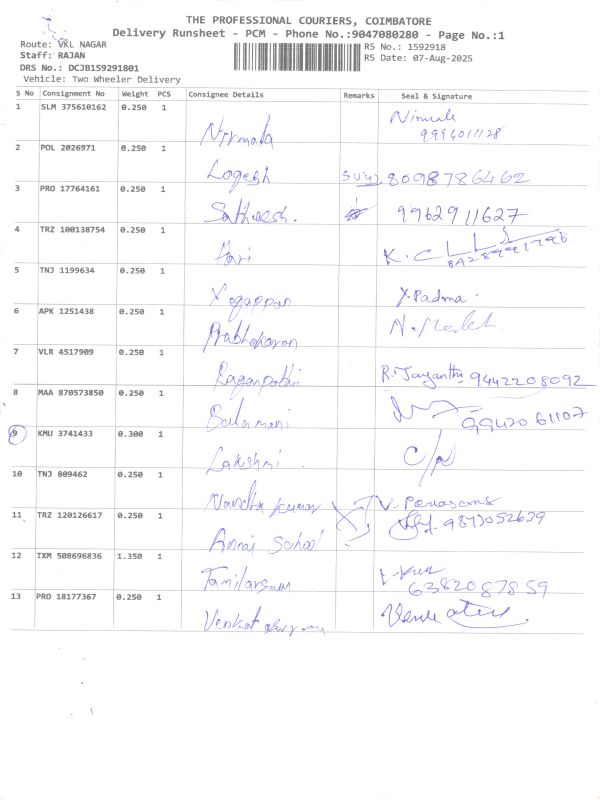 THE PROFESSIONAL COURIERS, COIMBATORE
Delivery Runsheet - PCM - Phone No.:9047080280 - Page No.:1
Route: VKL NAGAR
Staff: RAJAN
DRS No.: DCJB159291801
Vehicle: Two Wheeler Delivery
RS No.: 1592918
RS Date: 07-Aug-2025
S No Consignment No Weight PCS Consignee Details Remarks Seal & Signature
1 SLM 375610162 0.250 1 Nirmala Nirmala
9994011128
2 POL 2026971 0.250 1 Logesh 8098786462
3 PRO 17764161 0.250 1 Satheesh. 9962911627
4 TRZ 100138754 0.250 1 Hari K.C
5 TNJ 1199634 0.250 1 Yogappan Y.Padma.
6 APK 1251438 0.250 1 Prabhakaran
7 VLR 4517909 0.250 1 Raganpathi R. Jayanthi 9442208092
8 MAA 870573850 0.250 1 Balamani 9942061107
9 KMU 3741433 0.300 1 Lakshmi
10 TNJ 809462 0.250 1 Nandha kumar V.
11 TRZ 120126617 0.250 1 Annai School
12 IXM 508696836 1.350 1 Tamilarasan
6382087859
13 PRO 18177367 0.250 1